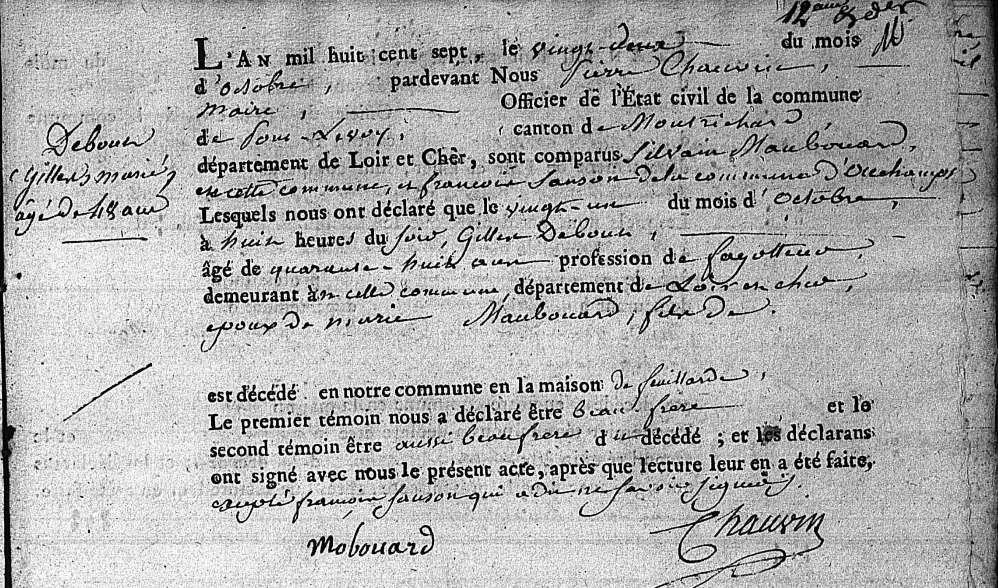 L'AN mil huit cent sept, le vingt-deux du mois
d'octobre, pardevant Nous Pierre Chauvin,
maire, Officier de l'État civil de la commune
de Pont-Levoy, canton de Montrichard,
département de Loir et Cher, sont comparus Silvain Maubouard,
en cette commune, et francois Sanson de la commune d'Ouchamps
Lesquels nous ont déclaré que le vingt-un du mois d'Octobre,
à huit heures du soir, Gilles Debour,
âgé de quarante-huit ans profession de fagotteur,
demeurant à en cette commune, département de Loir et cher,
epoux de marie Maubouard, fils de.
est décédé en notre commune en la maison de feuillarde,
Le premier témoin nous a déclaré être beau-frere et le
second témoin être aussi beau frere du décédé ; et les déclarans
ont signé avec nous le présent acte, après que lecture leur en a été faite,
excepté françois Sanson qui a dit ne savoir signer.
Mobouard
Chauvin
Debour
Gilles marié
âgé de 48 ans